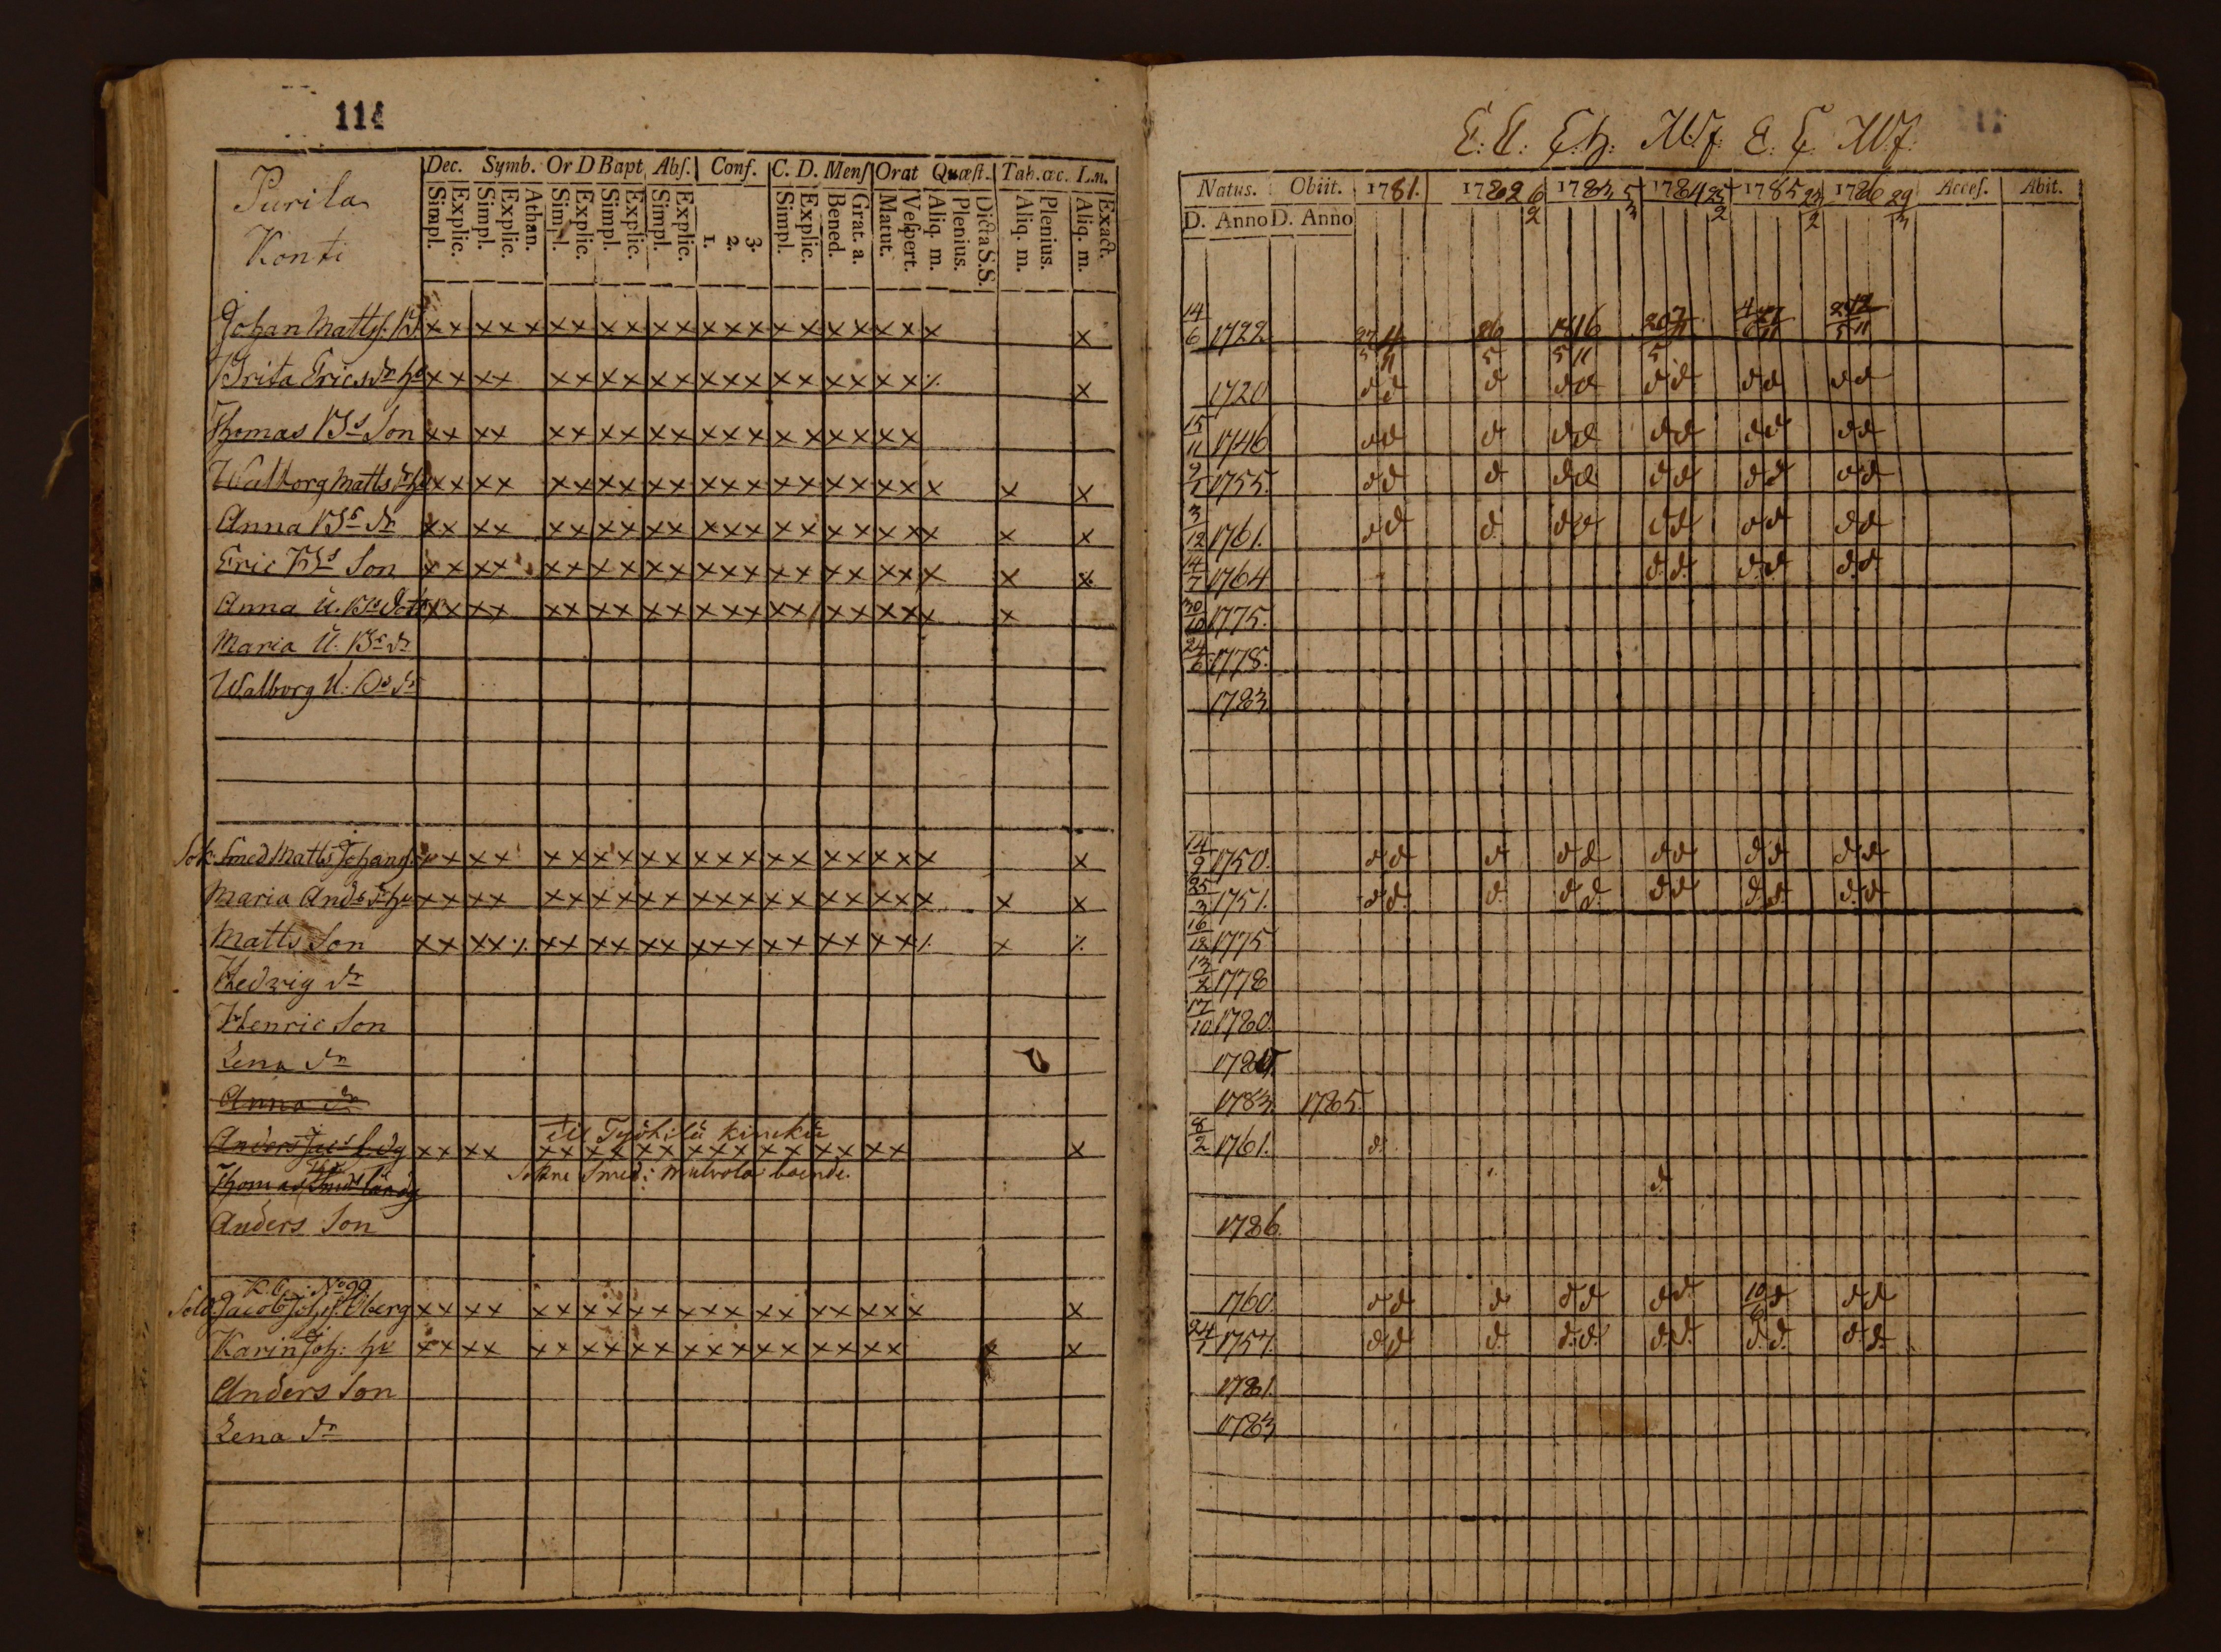 114
Purila
Konti
Dec. Symb. Or D Bapt. Abſ. Conf. C. D. Menſ Orat Quæſt. Tab. œc. L.n.
Simpl. Explic. Simpl. Explic. Athan. Simpl. Explic. Simpl. Explic. Simpl. Explic. 1. 2. 3. Simpl. Explic. Bened. Grat. a. Matut. Veſpert. Aliq. m. Plenius. Dicta S.S. Aliq. m. Plenius. Aliq. m. Exact.
Johan Mattsſ. B. x x x x x x x x x x x x x x x x x x x x x
Brita Ericsdr hu x x x x x x x x x x x x x x x x x x ٪ x
Thomas Bds Son x x x x x x x x x x x x x x x x x x
Walborg Matts dr hu x x x x x x x x x x x x x x x x x x x x x
Anna Bds dr x x x x x x x x x x x x x x x x x x x x x
Eric Bds Son x x x x x x x x x x x x x x x x x x x x x
Anna U. Bds dotr x x x x x x x x x x x x x x x x x x x x
Maria U. Bds dr
Walborg U. Bds dr
Sok. Smed Matts Johansſ. x x x x x x x x x x x x x x x x x x x x
Maria Ands dr hu x x x x x x x x x x x x x x x x x x x x x
Matts Son x x x x ٪ x x x x x x x x x x x x x x ٪ x ٪
Hedvig dr
Henric Son
Lena dr
Anna dr
til Työkilä kinckū
Anders x x x x x x x x x x x x x x x x x x x
Sokne Smed i mulvola boende.
Thomas
Anders Son
No 99
Sold. Jacob Johsſ. Öberg x x x x x x x x x x x x x x x x x x x x
Karin Joh: hu x x x x x x x x x x x x x x x x x x x x
Anders Son
Lena dr
E: E: E: h: M:f: E. E M:f:
Natus. Obiit. 1781. 1782 6/2 1783 5/3 1784 25/2 1785 23/2 1786 29/3 Acceſ. Abit.
D. Anno D. Anno
14/6 1722
1720 d d d d d d d d d d d
15/11 1746 d d d d d d d d d d d
1755. d d d d d d d d d d d
3/12 1761. d d d d d d d d d d d
14/7 1764 d. d. d. d d. d
30/10 1775.
24/6 1778.
1783
14/9 1750. d d d d d d d d d d d
25/3 1751. d d. d. d d. d d d. d. d. d
16/12 1775
13/2 1778
17/10 1780.
178
1783. 1785.
8/2 1761. d.
d.
1786.
1760. d d d d d d d 10/6 d d d
24/ 1757. d d d. d. d. d. d. d. d. d. d.
1781.
1783